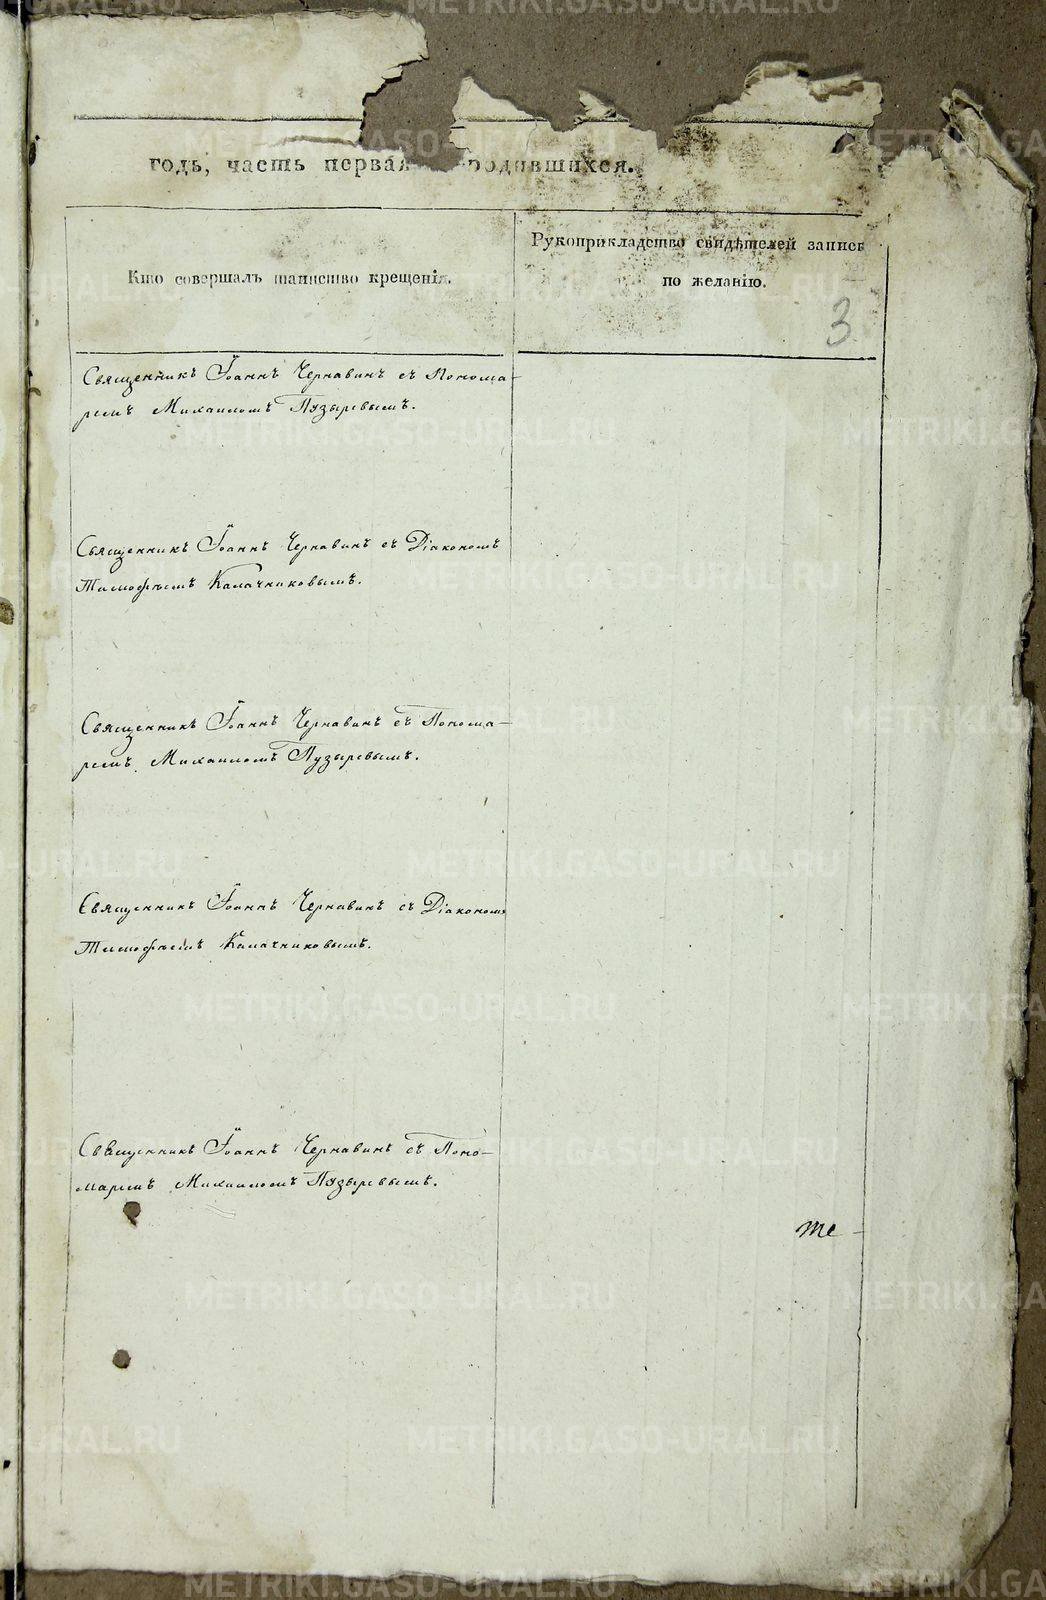 годъ, часть первая родившихся.
Кто совершалъ таинство крещенія.
Рукоприкладство свидѣтелей записи
по желанію.
3
Священникъ Іоаннъ Чернавинъ съ Понома-
ремъ Михаиломъ Пузыревымъ.
Священникъ Іоаннъ Чернавинъ съ Діакономъ
Тимофѣемъ Калачниковымъ.
Священникъ Іоаннъ Чернавинъ съ Понома-
ремъ Михаиломъ Пузыревымъ.
Священникъ Іоаннъ Чернавинъ съ Діакономъ
Тимофѣемъ Калачниковымъ.
Священникъ Іоаннъ Чернавинъ съ Поно-
маремъ Михаиломъ Пузыревымъ.
те-
METRIKI.GASO-URAL.RU